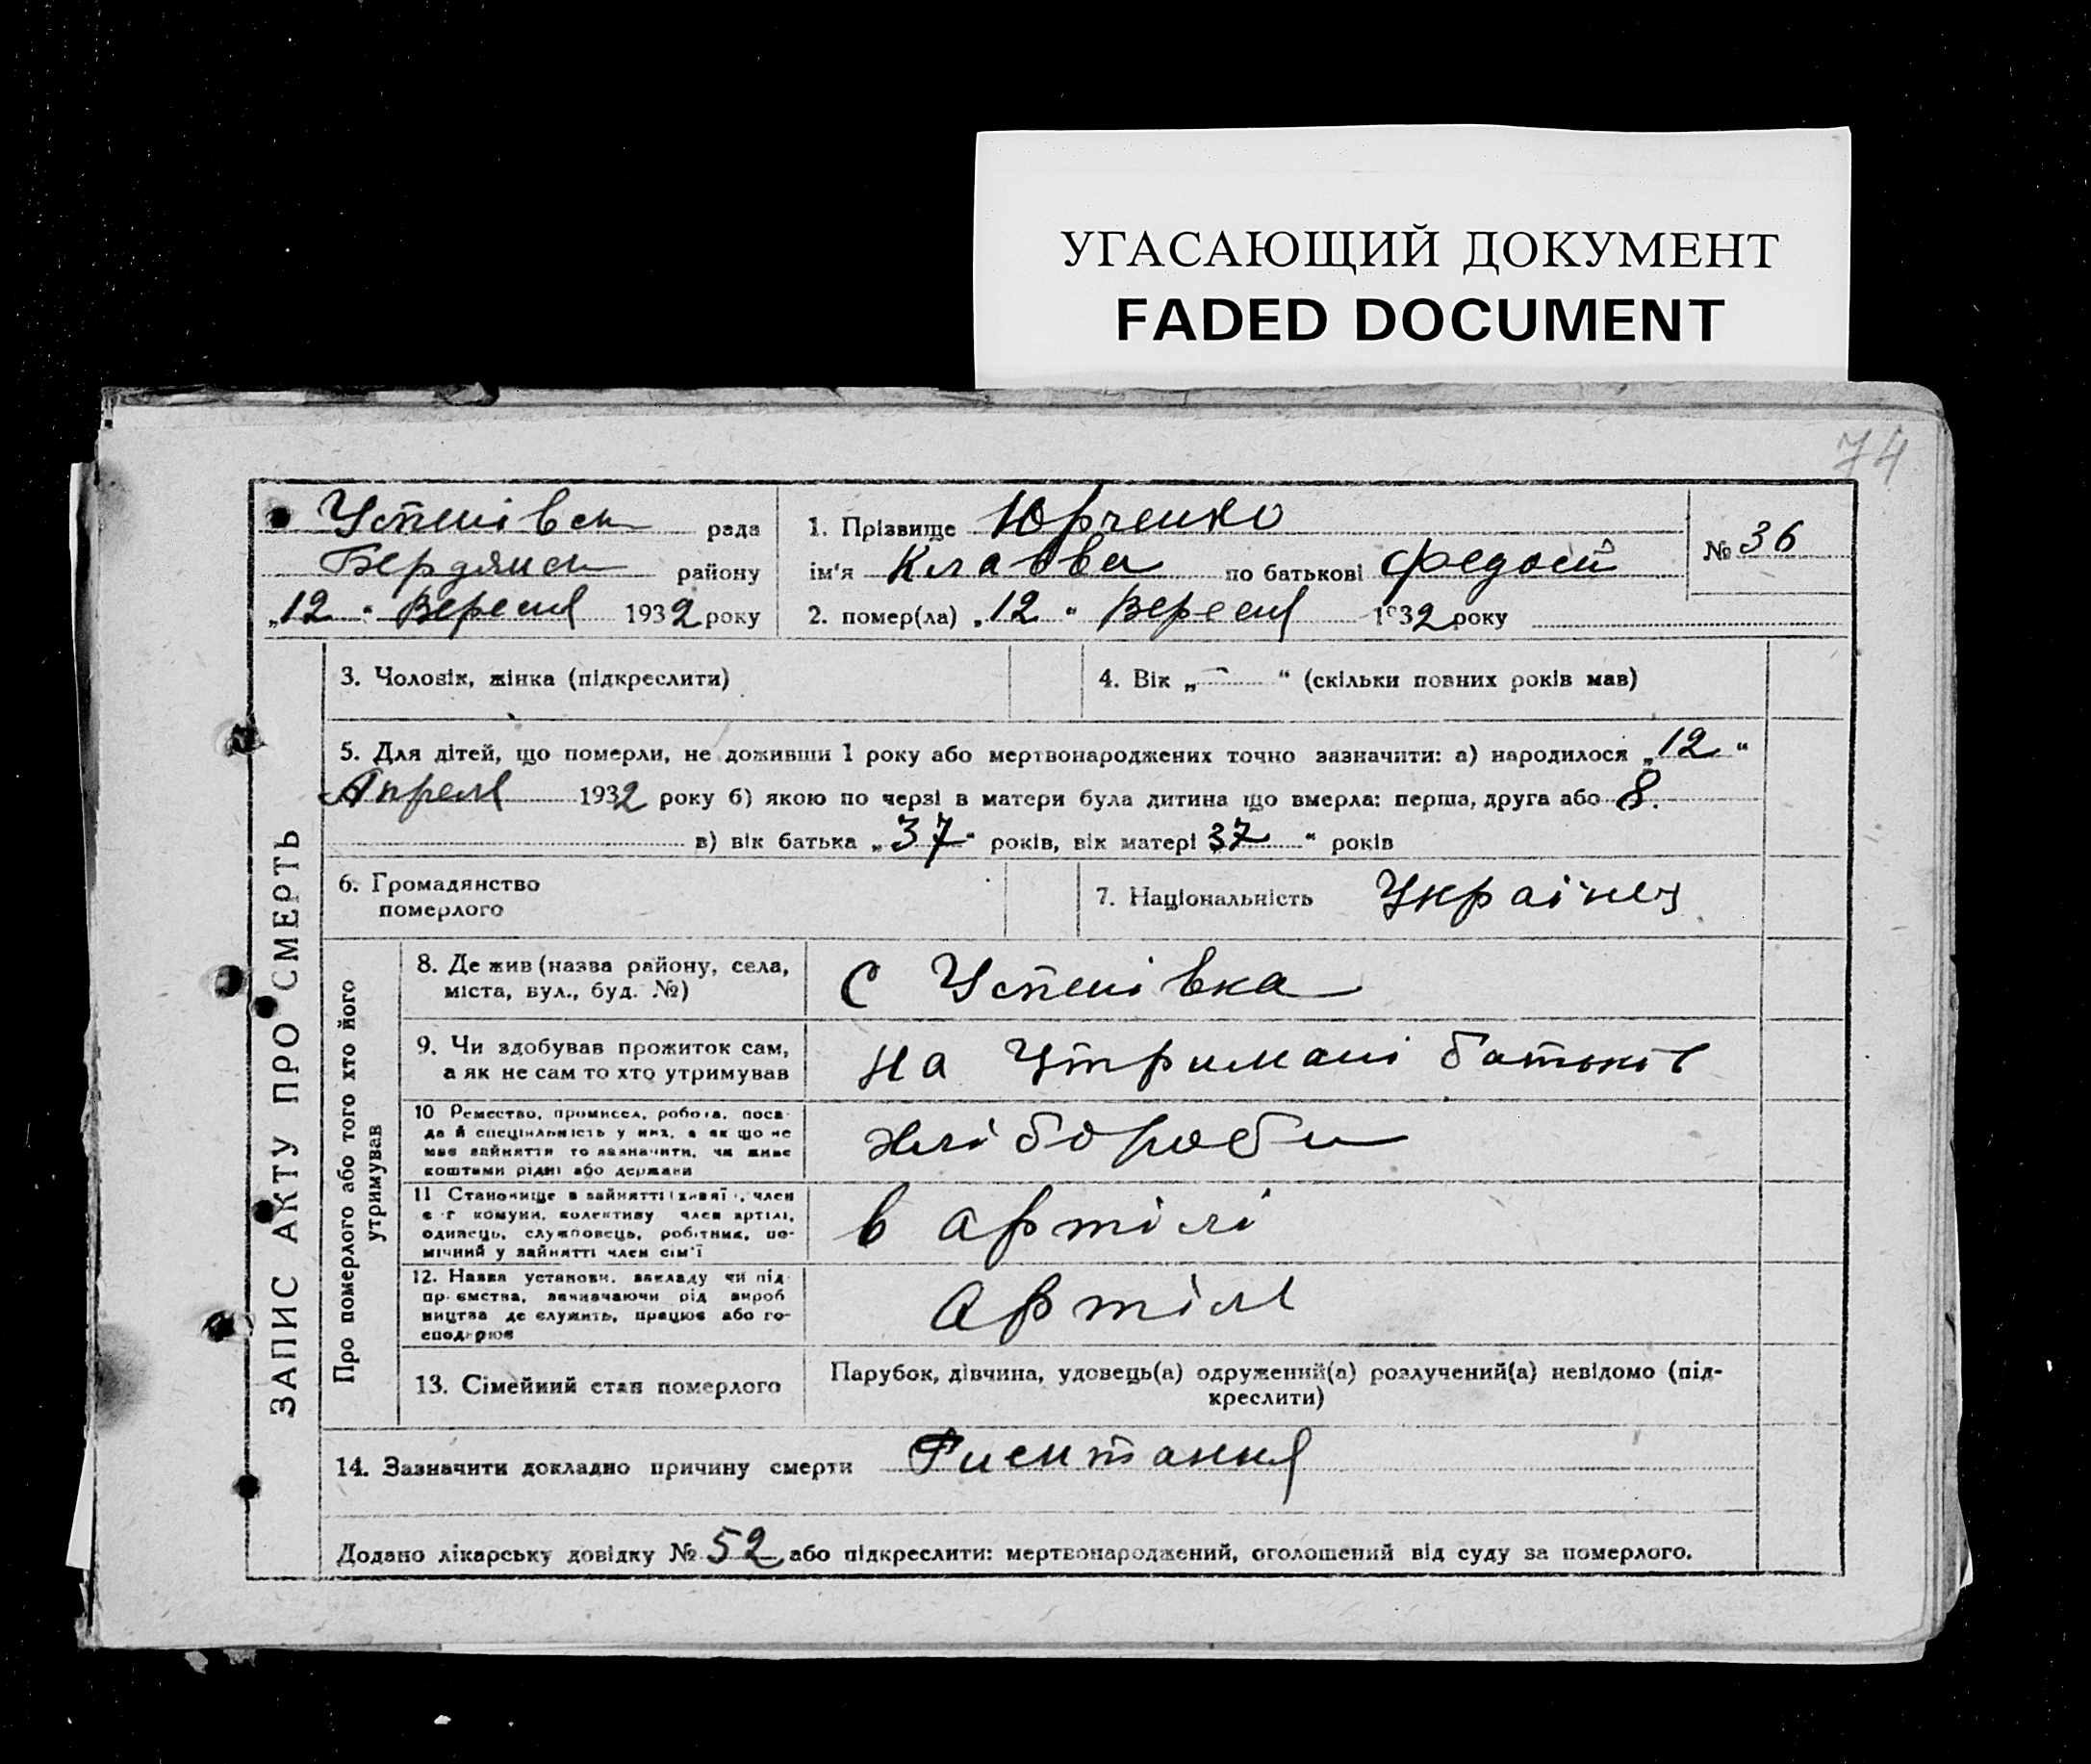 УГАСАЮЩИЙ ДОКУМЕНТ
FADED DOCUMENT
74
Успенівськ рада
Бердянськ району
„12“ Вересня 1932 року
1. Прізвище Юрченко
ім'я Клавва по батькові Федосій
№ 36
2. помер(ла) „12“ Вересня 1932 року
ЗАПИС АКТУ ПРО СМЕРТЬ
3. Чоловік, жінка (підкреслити)
4. Вік „—“ (скільки повних років мав)
5. Для дітей, що померли, не доживши 1 року або мертвонароджених точно зазначити: а) народилося „12“
Апреля 1932 року б) якою по черзі в матери була дитина що вмерла: перша, друга або 8.
в) вік батька „37“ років, вік матері „37“ років
6. Громадянство
померлого
7. Національність Українец
Про померлого або того хто його
утримував
8. Де жив (назва району, села,
міста, вул., буд. №)
С Успенівка
9. Чи здобував прожиток сам,
а як не сам то хто утримував
на Утримані батьків
10 Ремество, промисел, робота, поса-
да й спеціяльність у них, а як що не
має зайняття то зазначити, чи живе
коштами рідні або держави
хлібороби
11 Становище в зайнятті (хазяї, член
с-г комуни, колективу член артілі,
одинець, службовець, робітник, по-
мічний у зайнятті член сім'ї
в артілі
12. Назва установи, закладу чи під-
пр-ємства, зазначаючи рід вироб
ництва де служить, працює або го-
сподарює
Артіль
13. Сімейний стан померлого
Парубок, дівчина, удовець(а) одружений(а) розлучений(а) невідомо (під-
креслити)
14. Зазначити докладно причину смерти
Додано лікарську довідку № 52 або підкреслити: мертвонароджений, оголошений від суду за померлого.